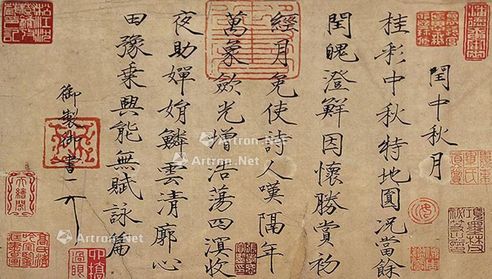 閏中秋月
桂彩中秋特地圓況當餘
閏魄澄鮮因懷勝賞初
經月免使詩人嘆隔年
萬象斂光增浩蕩四溟收
夜助嬋娟鱗雲清廓心
田豫乘興能無賦詠篇
御製御書
Artron.Net
Artron.Net
Artron.Net
Artron.Net